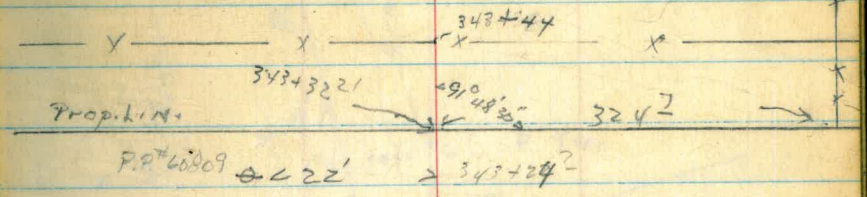 343+44
343+32²¹ <91° 48' 30"
Prop. Lin. 324⁷
P.P.#60809 <22' > 343+24²